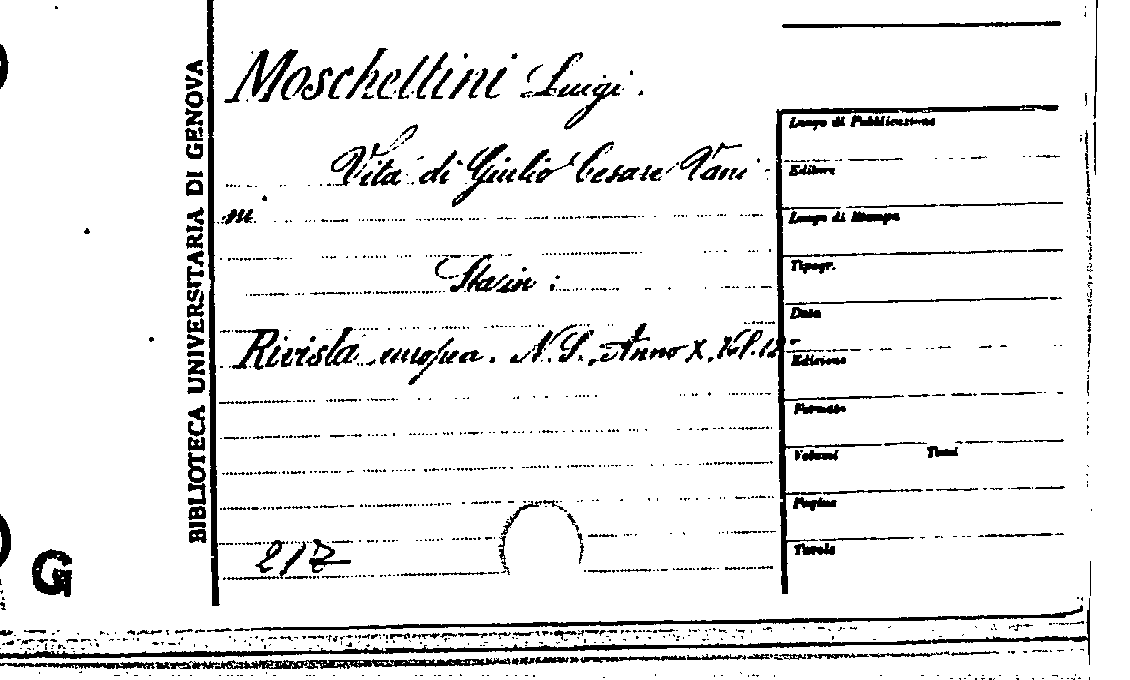 BIBLIOTECA UNIVERSITARIA DI GENOVA
Moschettini Luigi.
Vita di Giulio Cesare Vani-
ni.
Sta in:
Rivista europea. N. S., Anno X,
217
Luogo di Pubblicazione
Editore
Luogo di Stampa
Tipogr.
Data
Edizione
Formato
Volumi Tomi
Pagine
Tavole
G